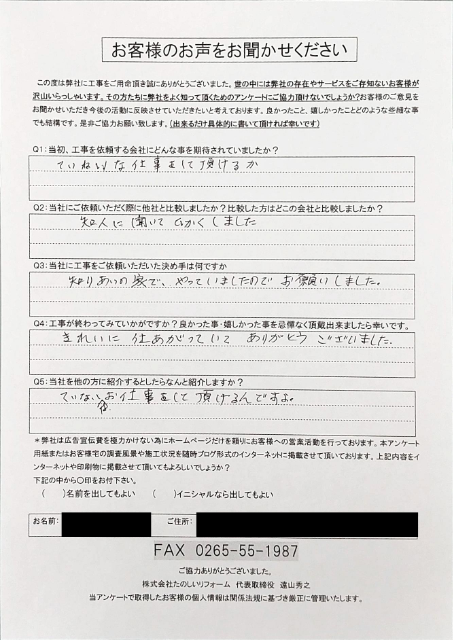 お客様のお声をお聞かせください
この度は弊社に工事をご用命頂き誠にありがとうございました。世の中には弊社の存在やサービスをご存知ないお客様が
沢山いらっしゃいます。その方たちに弊社をよく知って頂くためのアンケートにご協力頂けないでしょうか?お客様のご意見を
お聞かせいただき今後の活動に反映させていただきたいと考えております。良かったこと、嬉しかったことどのような些細な事
でも結構です。是非ご協力お願い致します。(出来るだけ具体的に書いて頂ければ幸いです)
Q1:当初、工事を依頼する会社にどんな事を期待されていましたか?
ていねいな仕事をして頂けるか
Q2:当社にご依頼いただく際に他社と比較しましたか?比較した方はどこの会社と比較しましたか?
知人に聞いてひかくしました
Q3:当社に工事をご依頼いただいた決め手は何ですか
知りあいの家で、やっていましたので お願いしました。
Q4:工事が終わってみていかがですか?良かった事・嬉しかった事を忌憚なく頂戴出来ましたら幸いです。
きれいに 仕あがっていて ありがとう ございました。
Q5:当社を他の方に紹介するとしたらなんと紹介しますか?
ていないお仕事をして頂けるんですよ。
*弊社は広告宣伝費を極力かけない為にホームページだけを頼りにお客様への営業活動を行っております。本アンケート
用紙またはお客様宅の調査風景や施工状況を随時ブログ形式のインターネットに掲載させて頂いております。上記内容をイ
ンターネットや印刷物に掲載させて頂いてもよろしいでしょうか?
下記の中から○印をお付下さい。
( )名前を出してもよい ( )イニシャルなら出してもよい
お名前: ご住所:
FAX 0265-55-1987
ご協力ありがとうございました。
株式会社たのしいリフォーム 代表取締役 遠山秀之
当アンケートで取得したお客様の個人情報は関係法規に基づき厳正に管理いたします。